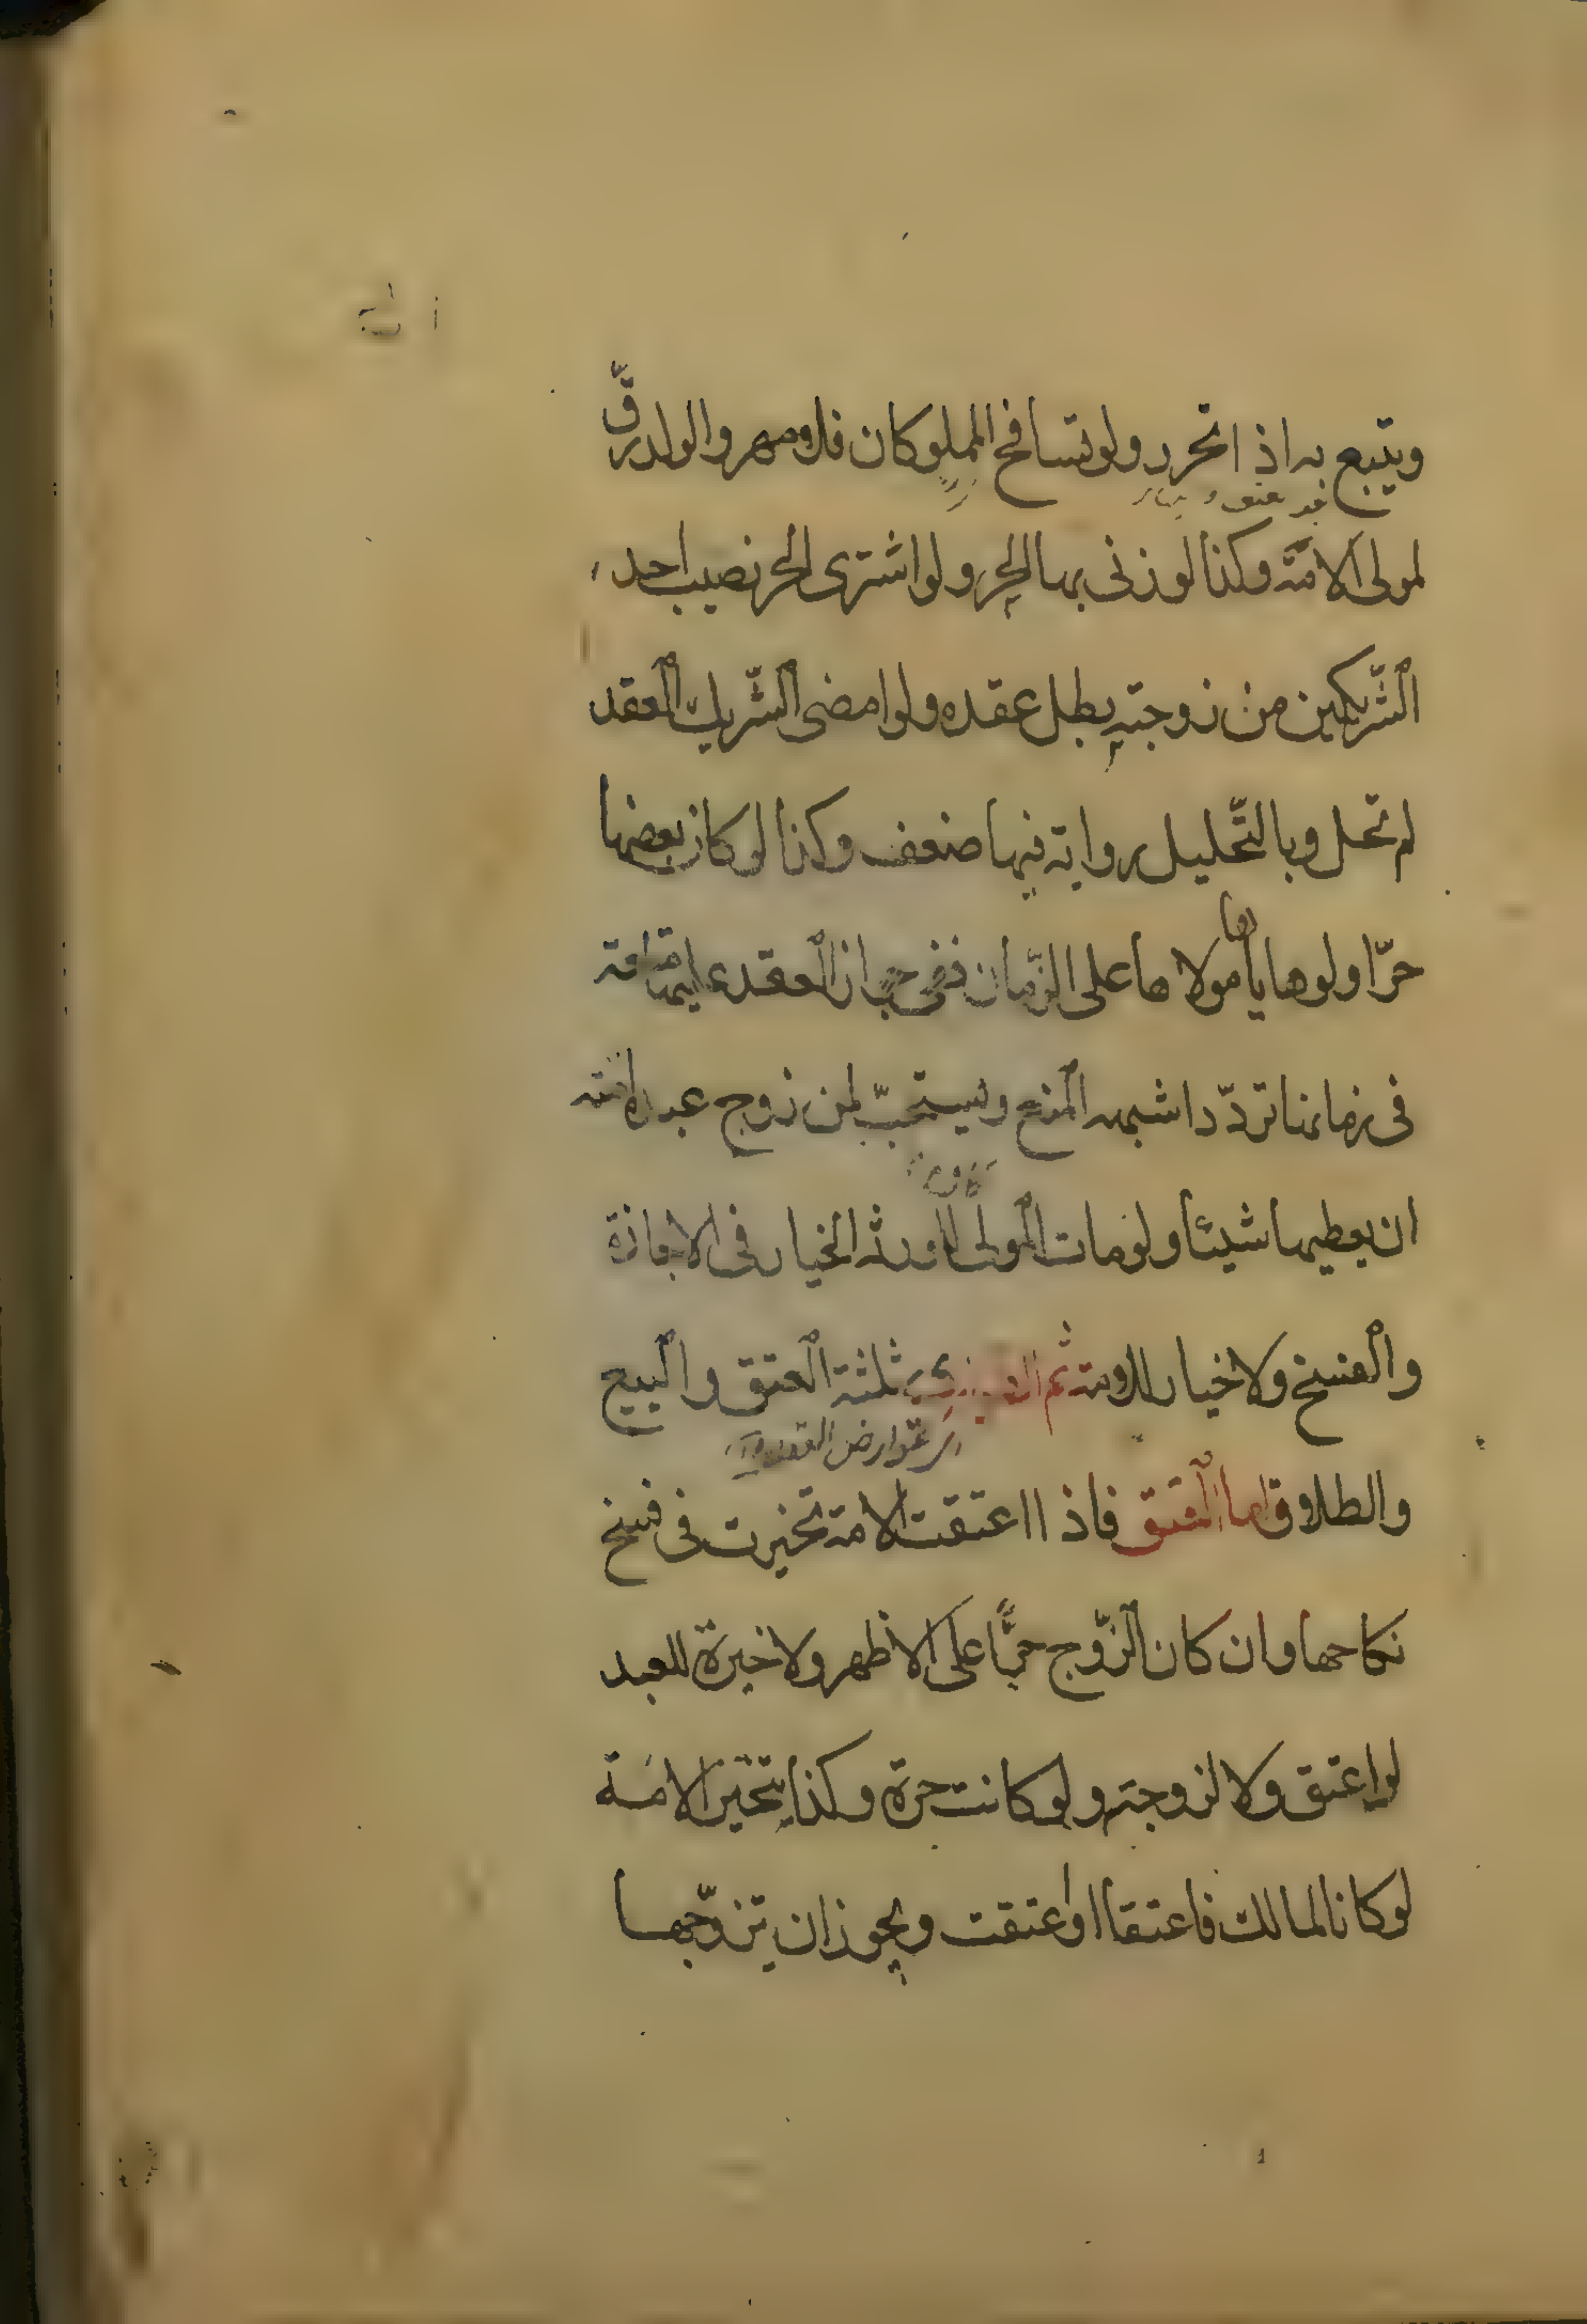 ويتبع به اذا تحرر ولو تسافح المملوكان فلا مهر والولد رقّ
لمولى الامة وكذا لو زنى بها الحر ولو اشترى الحر نصيب احد
الشّريكين من زوجته بطل عقده ولو امضى الشّريك العقد
لم تحل وبالتّحليل رواية فيها ضعف وكذا لو كان بعضها
حرّا ولو هايأ مولاها على الزّمان ففي جواز العقد عليها متعة
في زمانها تردّد اشبهه المنع ويستحبّ لمن زوج عبده امته
ان يعطيها شيئا ولو مات المولى فللورثة الخيار في الاجازة
والفسخ ولا خيار للامة ثم الطوارى ثلثة العتق والبيع
والطلاق اما العتق فاذا اعتقت الامة تخيرت في فسخ
نكاحها وان كان الزّوج حرًّا على الاظهر ولا خيرة للعبد
لو اعتق ولا لزوجته ولو كانت حرة وكذا تتخير الامة
لو كانا لمالك فاعتقا او اعتقت ويجوز ان يتزوّجها